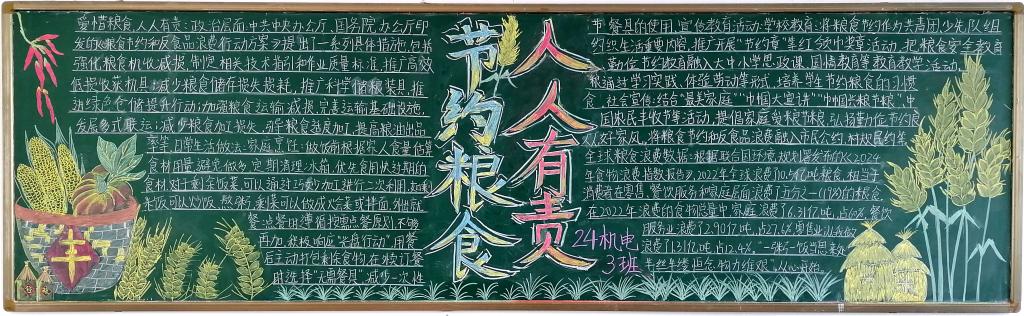 爱惜粮食,人人有责:政治层面,中共中央办公厅、国务院办公厅印
发的《粮食节约和反食品浪费行动方案》提出了一系列具体措施,包括
强化粮食机收减损,制定相关技术指引和作业质量标准,推广高效
低损收获机具;减少粮食储存损失损耗,推广科学储粮装具,推
进绿色仓储提升行动;加强粮食运输减损,完善运输基础设施,
发展多式联运;减少粮食加工损失,引导粮食适度加工,提高粮油出品
率等,日常生活做法:家庭烹饪:做饭前根据家人食量估算
食材用量,避免做多,定期清理冰箱,优先食用快过期的
食材,对于剩余饭菜,可以通过巧妙加工进行二次利用,如剩
米饭可以炒饭、熬粥,剩菜可以做成烩菜或拌面,外出就
餐:点餐时遵循按需点餐原则,不够
再加,积极响应“光盘行动”,用餐
后主动打包剩余食物,在预订餐
时选择“无需餐具”,减少一次性
节约粮食
人人有责
24机电
3班
丰
节餐具的使用,宣传教育活动:学校教育:将粮食节约作为共青团、少先队组
织生活重要内容,推广开展“节约章”等红领巾奖章活动,把粮食安全教育
、勤俭节约教育融入大中小学思政课、国情教育等教育教学活动,
粮通过学习实践、体验劳动等形式,培养学生节约粮食的习惯
食,社会宣传:结合“最美家庭”“中国大宣讲”“中国光粮节粮”、中
国农民丰收节等活动,提倡家庭爱粮节粮,弘扬勤俭节约
人好家风,将粮食节约和反食品浪费融入市民公约、村规民约等,
全球粮食浪费数据:根据联合国环境规划署发布的《2024
年食物浪费指数报告》,2022年全球浪费10.5亿吨粮食,相当于
消费者在零售、餐饮服务和家庭层面浪费了五分之一(19%)的粮食,
在2022年浪费的食物总量中,家庭浪费了6.31亿吨,占60%,餐饮
服务业浪费2.90亿吨,占27.6%,零售业
浪费1.31亿吨,占12.4%,“一粥一饭当思来处
半丝半缕恒念物力维艰”,从心开始